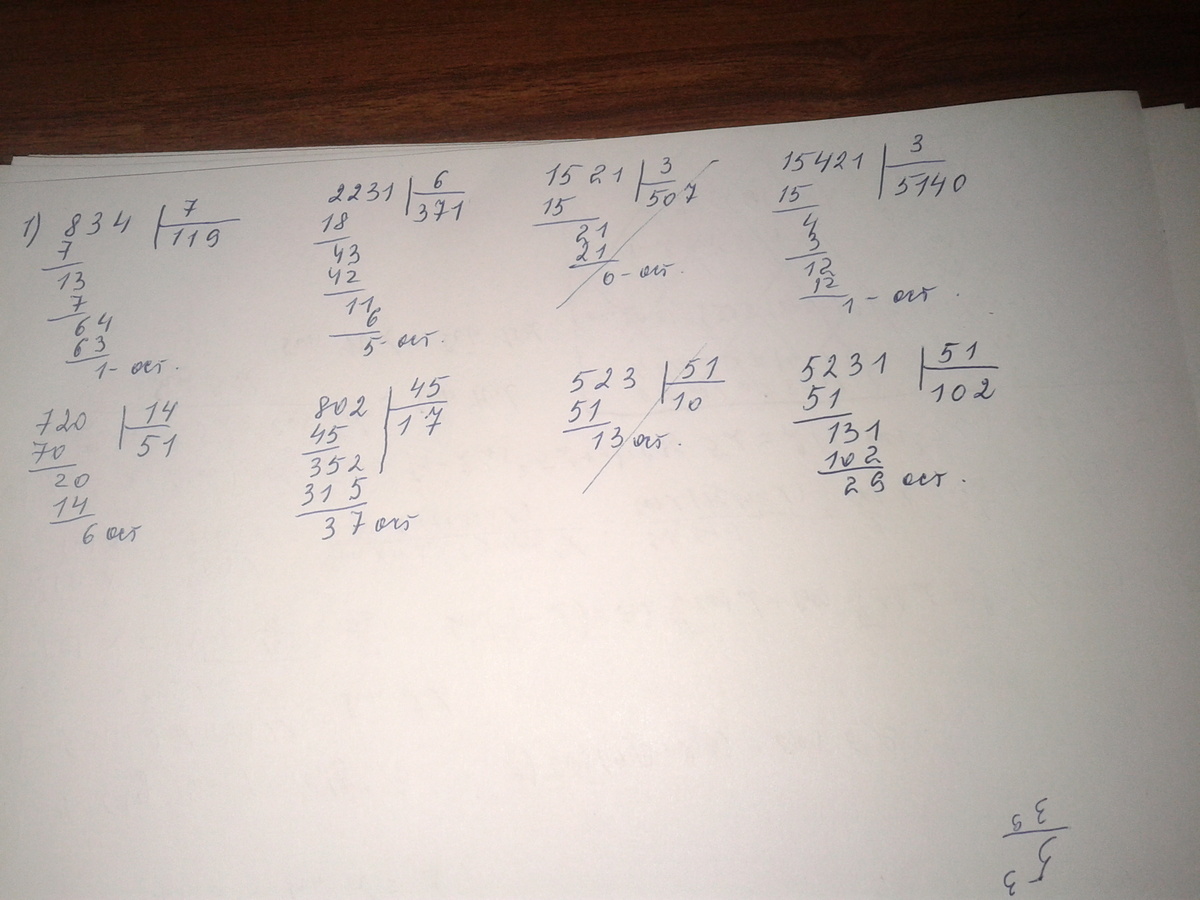 1) 834 7
119
7
13
7
64
63
1- ост.
2231 6
371
18
43
42
11
6
5- ост.
1521 3
507
15
21
21
0- ост.
15421 3
5140
15
4
3
12
12
1 - ост.
720 14
51
70
20
14
6 ост
802 45
17
45
352
315
37 ост
523 51
10
51
13 ост.
5231 51
102
51
131
102
29 ост.
53
5
39